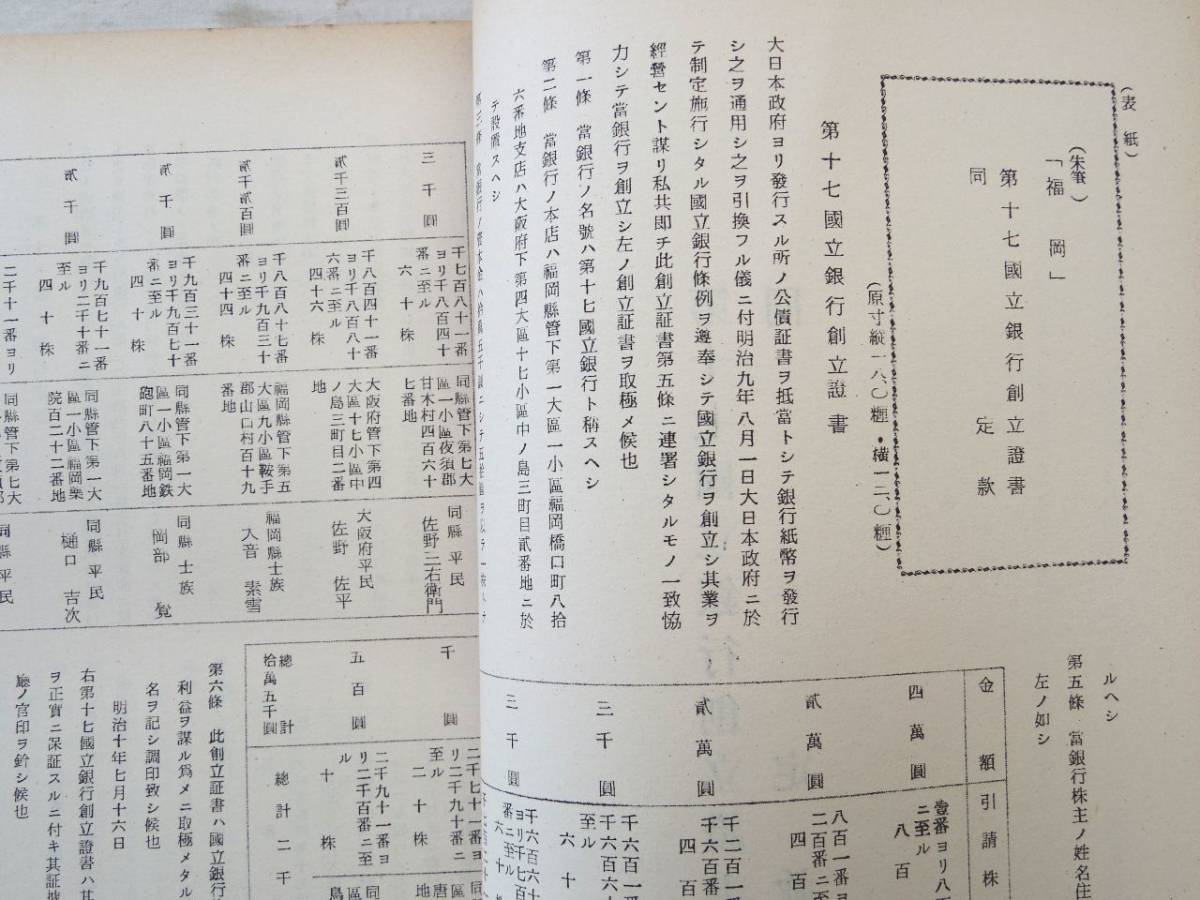 (表紙)
(朱筆)
「福岡」
第十七國立銀行創立證書
同定款
(原寸縱一八〇糎・橫一二〇糎)
第十七國立銀行創立證書
大日本政府ヨリ發行スル所ノ公債証書ヲ抵當トシテ銀行紙幣ヲ發行
シ之ヲ通用シ之ヲ引換フル儀ニ付明治九年八月一日大日本政府ニ於
テ制定施行シタル國立銀行條例ヲ遵奉シテ國立銀行ヲ創立シ其業ヲ
經營セント謀リ私共即チ此創立証書第五條ニ連署シタルモノ一致協
力シテ當銀行ヲ創立シ左ノ創立証書ヲ取極メ候也
第一條 當銀行ノ名號ハ第十七國立銀行ト稱スヘシ
第二條 當銀行ノ本店ハ福岡縣管下第一大區一小區福岡橋口町八拾
六番地支店ハ大阪府下第四大區十七小區中ノ島三町目貳番地ニ於
テ設置スヘシ
ルヘシ
第五條 當銀行株主ノ姓名住
左ノ如シ
金額
引請株
四萬圓
壹番ヨリ八
ニ至ル
八百
貳萬圓
八百一番ヨ
四百
貳萬圓
千二百一
千六百番
四百
三千圓
千六百一
千六百六
至ル
六十
三千圓
千六百六十
三千圓
千七百八十一番
ヨリ千八百四十
番ニ至ル
六十株
同縣管下第七大
區一小區夜須郡
甘木村四百六十
七番地
同縣平民
佐野三右衛門
貳千三百圓
千八百四十一番
ヨリ千八百八十
六番ニ至ル
四十六株
大阪府管下第四
大區十七小區中
ノ島三町目二番
地
大阪府平民
佐野佐平
貳千貳百圓
千八百八十七番
ヨリ千九百三十
番ニ至ル
四十四株
福岡縣管下第五
大區九小區鞍手
郡山口村百十九
番地
福岡縣士族
入音素雪
貳千圓
千九百三十一番
ヨリ千九百七十
番ニ至ル
四十株
同縣管下第一大
區一小區福岡鉄
砲町八十五番地
同縣士族
岡部覺
貳千圓
千九百七十一番
ヨリ二千十番ニ
至ル
四十株
同縣管下第一大
區一小區福岡樂
院百二十二番地
同縣平民
樋口吉次
二千十一番ヨリ
同縣管下第七大
同縣平民
千圓
二千七十一番ヨ
リ二千九十番ニ
至ル
二十株
五百圓
二千九十一番ヨ
リ二千百番ニ至
ル
十株
總計
拾萬五千圓
總計二千
第六條 此創立証書ハ國立銀行
利益ヲ謀ル爲メニ取極メタル
名ヲ記シ調印致シ候也
明治十年七月十六日
右第十七國立銀行創立證書ハ其
ヲ正實ニ保証スルニ付キ其証據
廳ノ官印ヲ鈐シ候也